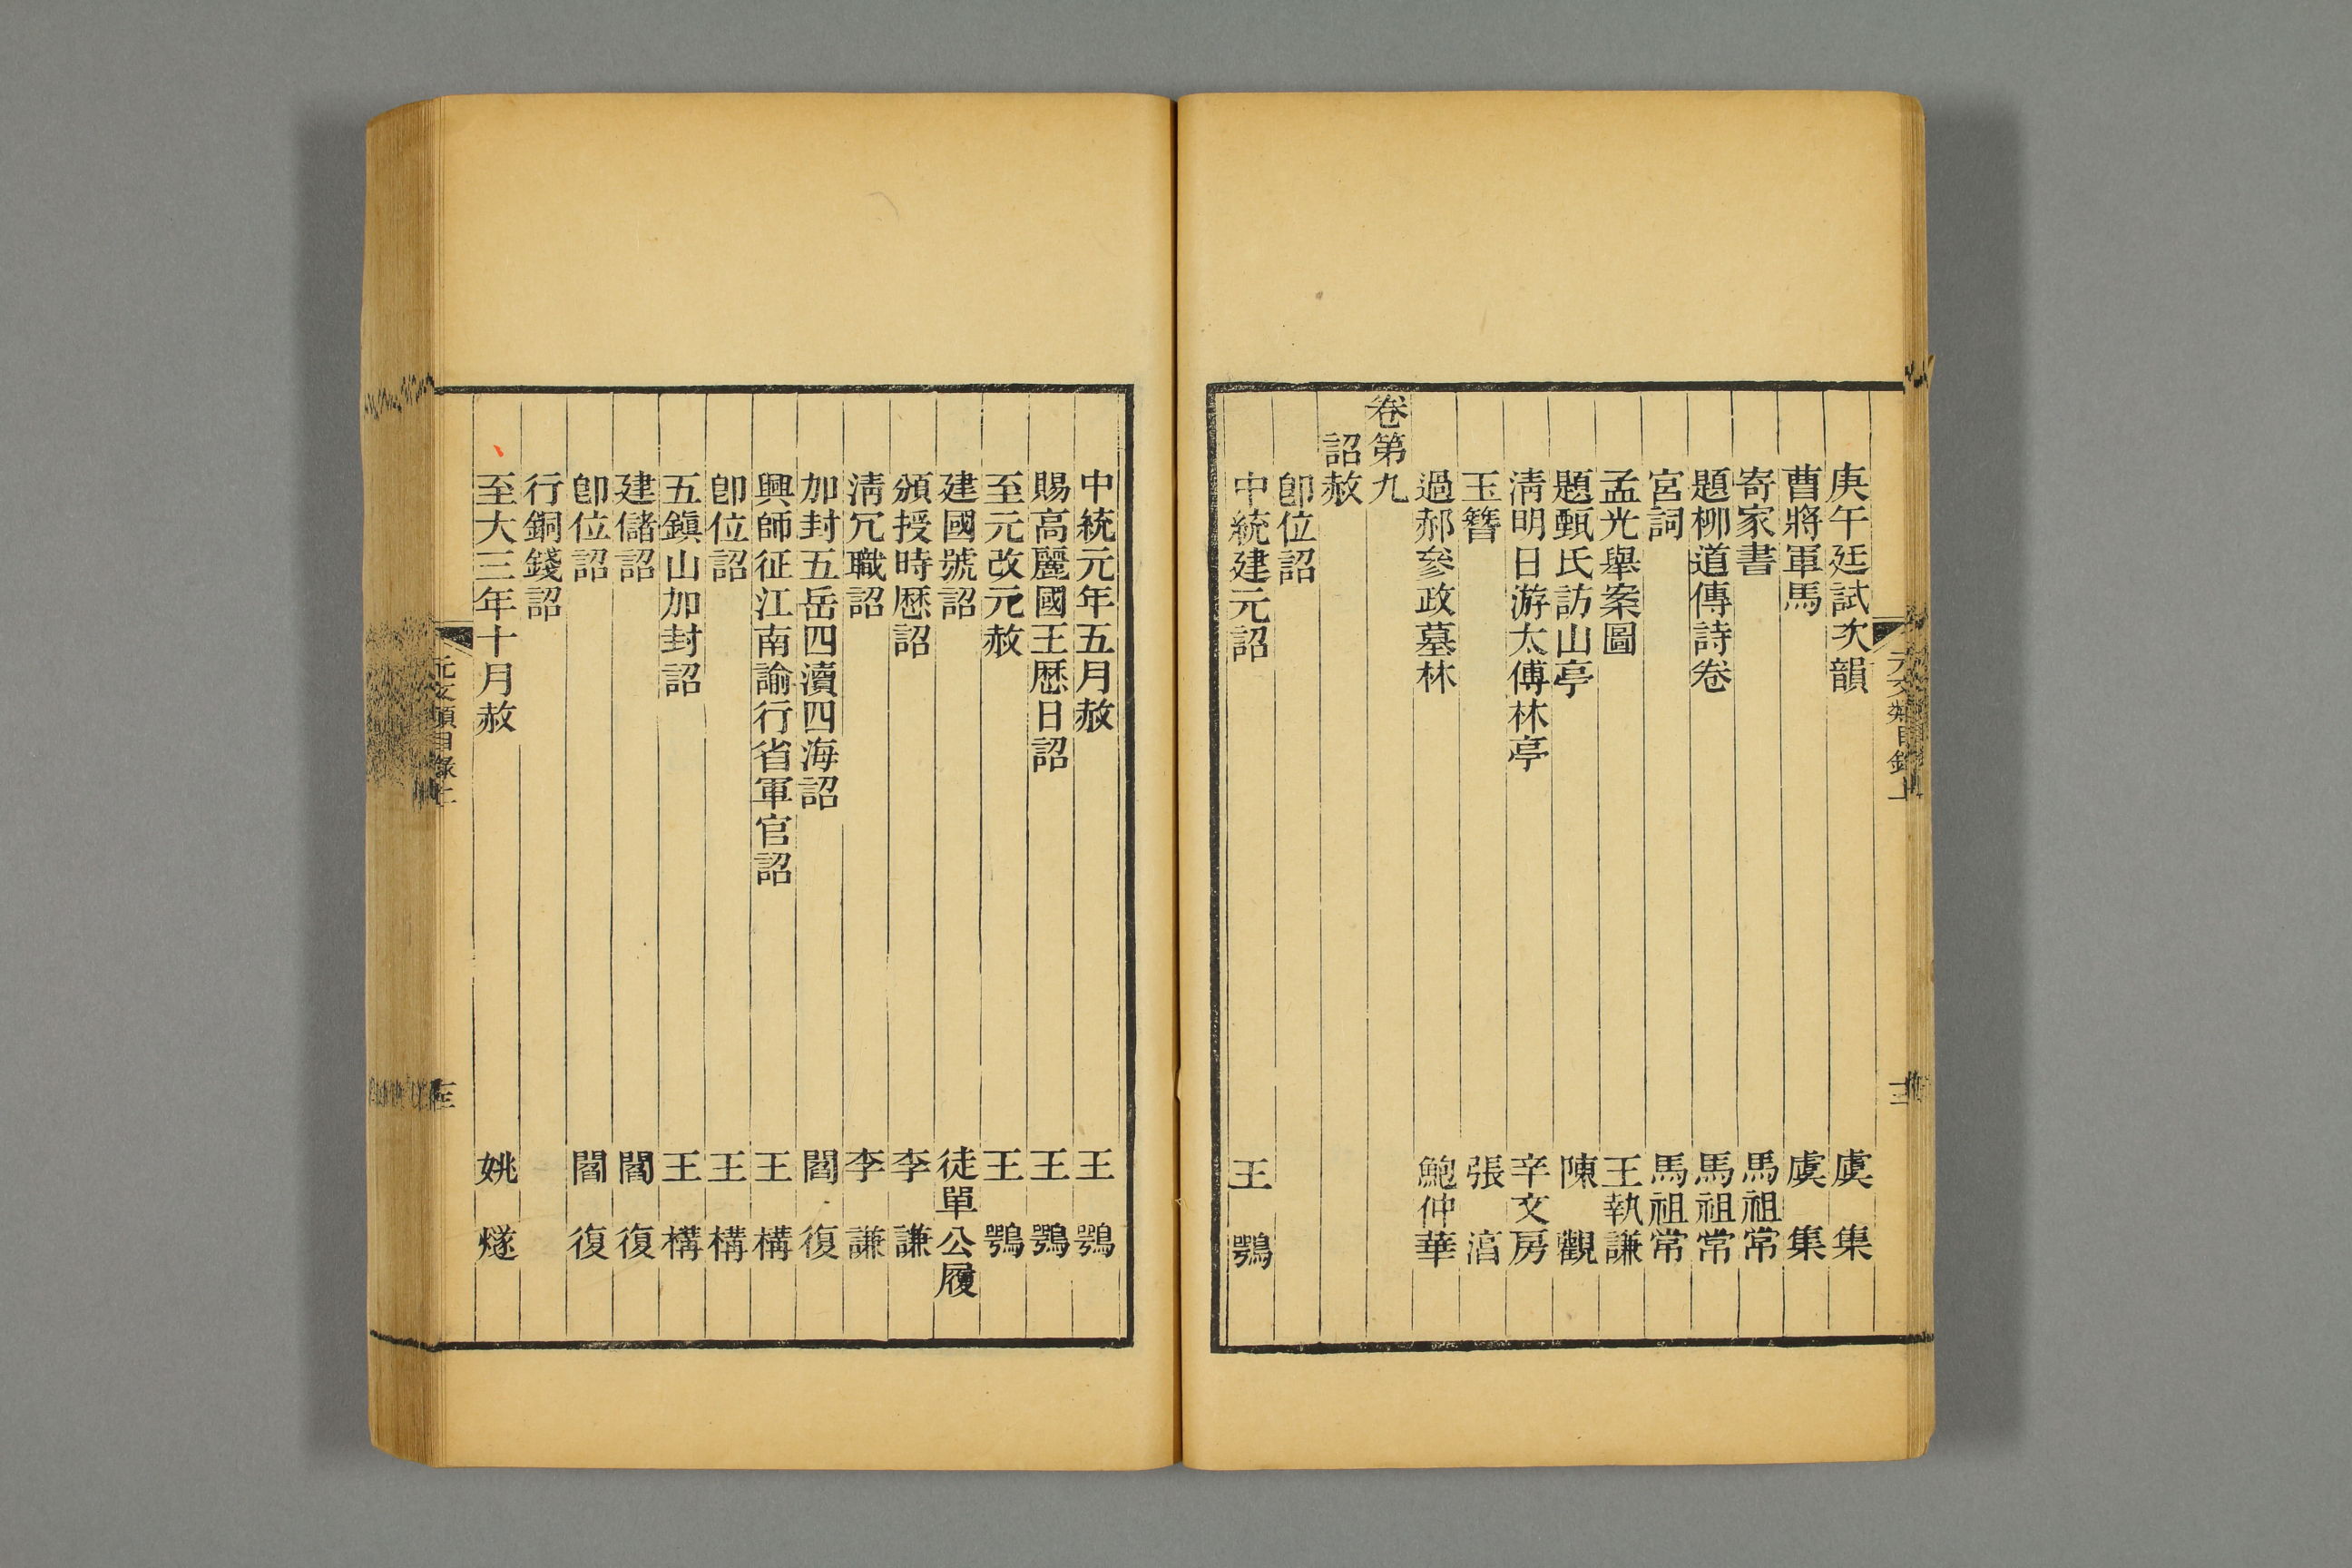 庚午廷試次韻 虞集
曹將軍馬 虞集
寄家書 馬祖常
題柳道傳詩卷 馬祖常
宮詞 馬祖常
孟光舉案圖 王執謙
題甄氏訪山亭 陳觀
淸明日游太傅林亭 辛文房
玉簪 張渻
過郝參政墓林 鮑仲華
卷第九
詔赦
卽位詔
中統建元詔 王鶚
中統元年五月赦 王鶚
賜高麗國王曆日詔 王鶚
至元改元赦 王鶚
建國號詔 徒單公履
頒授時曆詔 李謙
淸冗職詔 李謙
加封五岳四瀆四海詔 閻復
興師征江南諭行省軍官詔 王構
卽位詔 王構
五鎭山加封詔 王構
建儲詔 閻復
卽位詔 閻復
行銅錢詔
至大三年十月赦 姚燧
元文類目錄上